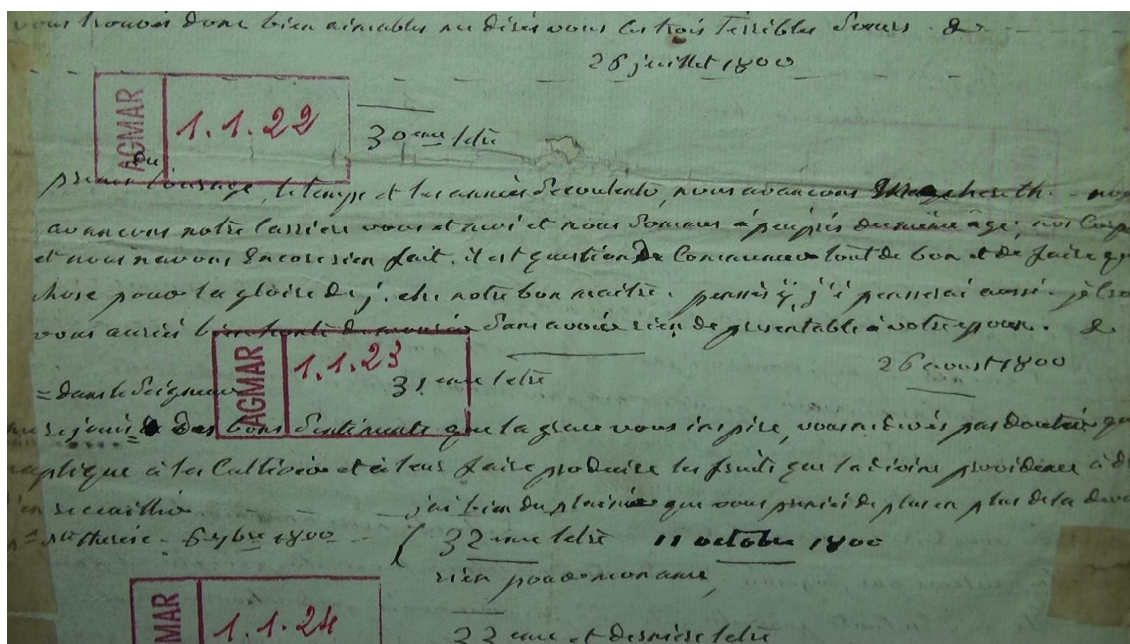 vous trouvés donc bien aimables me dirés vous les trois terribles Sœurs. &
26 juillet 1800
AGMAR 1.1.22
30 eme letre
ou
prenés l'ouvrage, le temps et les années s'ecoulents, nous avancons
avancons notre carriere vous et moi et nous sommes à peuprés du même âge; nos
et nous n'avons Encore rien fait. il est question De Commencer tout de bon et de faire
chose pour la gloire de j. chr notre bon maitre. pensés y, j'i penserai aussi.
vous auriés bien honte de mourir Sans avoir rien de presentable à votre epoux. &
26 aoust 1800
AGMAR 1.1.23
31 eme letre
= dans le Seigneur
me rejouis = Des bons Sentiments que la grace vous inspire, vous ne devés pas douter que
aplique à les Cultiver et à leur faire produire les fruits que la divine providence à
en recueillir. j'ai bien du plaisir que vous preniés de plus en plus de la
= ste therese - 6 7bre 1800 - ( 32 eme letre 11 octobre 1800
rien pour mon ame,
AGMAR 1.1.24
33 eme et derniere letre